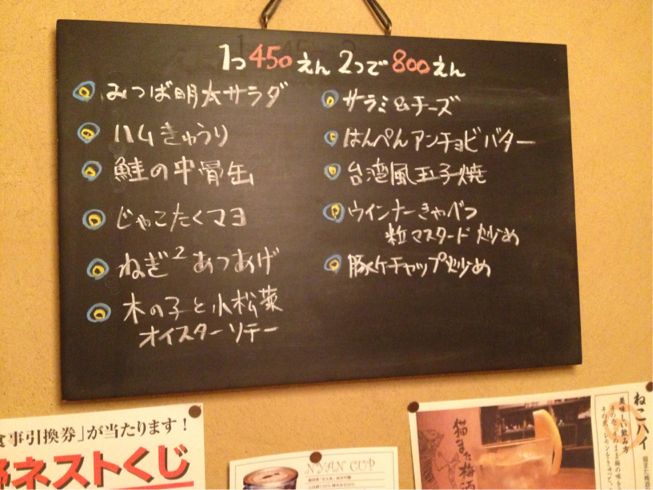 1つ450えん 2つで800えん
みつば明太サラダ
ハムきゅうり
鮭の中骨缶
じゃこたくマヨ
ねぎ²あつあげ
木の子と小松菜
オイスターソテー
サラミ&チーズ
はんぺんアンチョビバター
台湾風玉子焼
ウインナーきゃべつ
粒マスタード炒め
豚ケチャップ炒め
食事引換券」が当たります!
ネストくじ
NYAN CUP
猫また梅酒
ねこハイ
美味しい飲み方